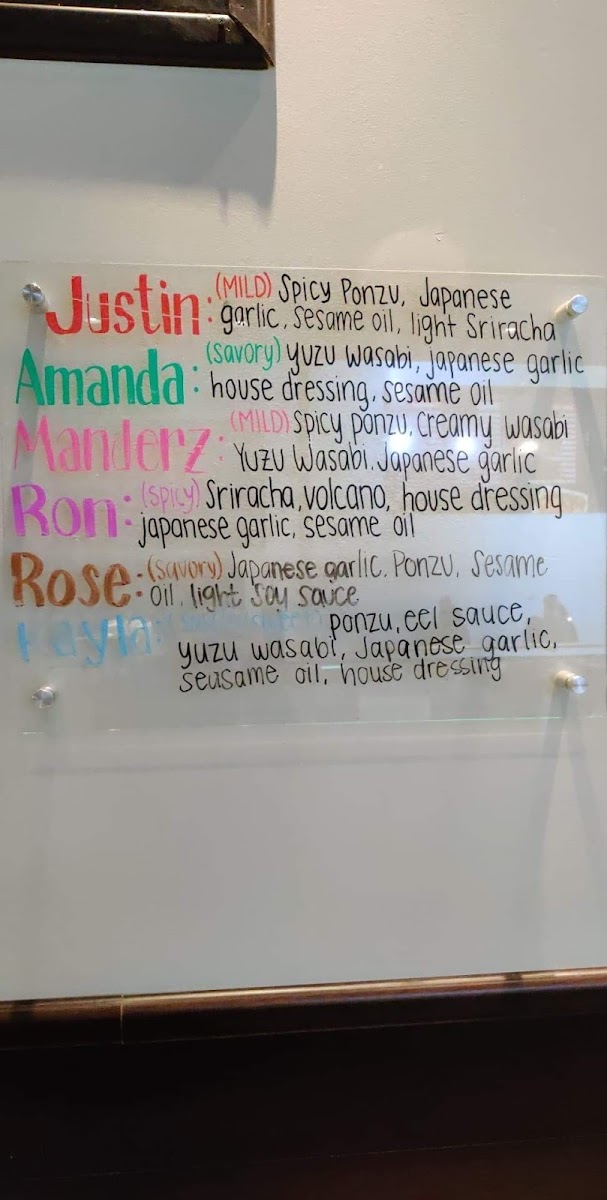 Justin: (MILD) Spicy Ponzu, Japanese
garlic, sesame oil, light Sriracha
Amanda: (savory) yuzu wasabi, japanese garlic
house dressing, sesame oil
Manderz: (MILD) Spicy ponzu, creamy wasabi
Yuzu Wasabi, Japanese garlic
Ron: (spicy) Sriracha, volcano, house dressing
japanese garlic, sesame oil
Rose: (savory) Japanese garlic, Ponzu, Sesame
oil, light Soy sauce
Kayla: ponzu, eel sauce,
yuzu wasabi, Japanese garlic,
seusame oil, house dressing